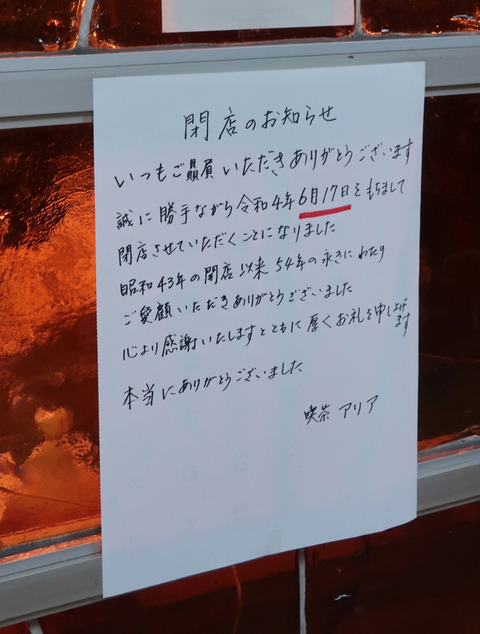 閉店のお知らせ
いつもご贔屓いただきありがとうございます
誠に勝手ながら令和4年6月17日をもちまして
閉店させていただくことになりました
昭和43年の開店以来54年の永きにわたり
ご愛顧いただきありがとうございました
心より感謝いたしますとともに厚くお礼を申し上げます
本当にありがとうございました
喫茶 アリア